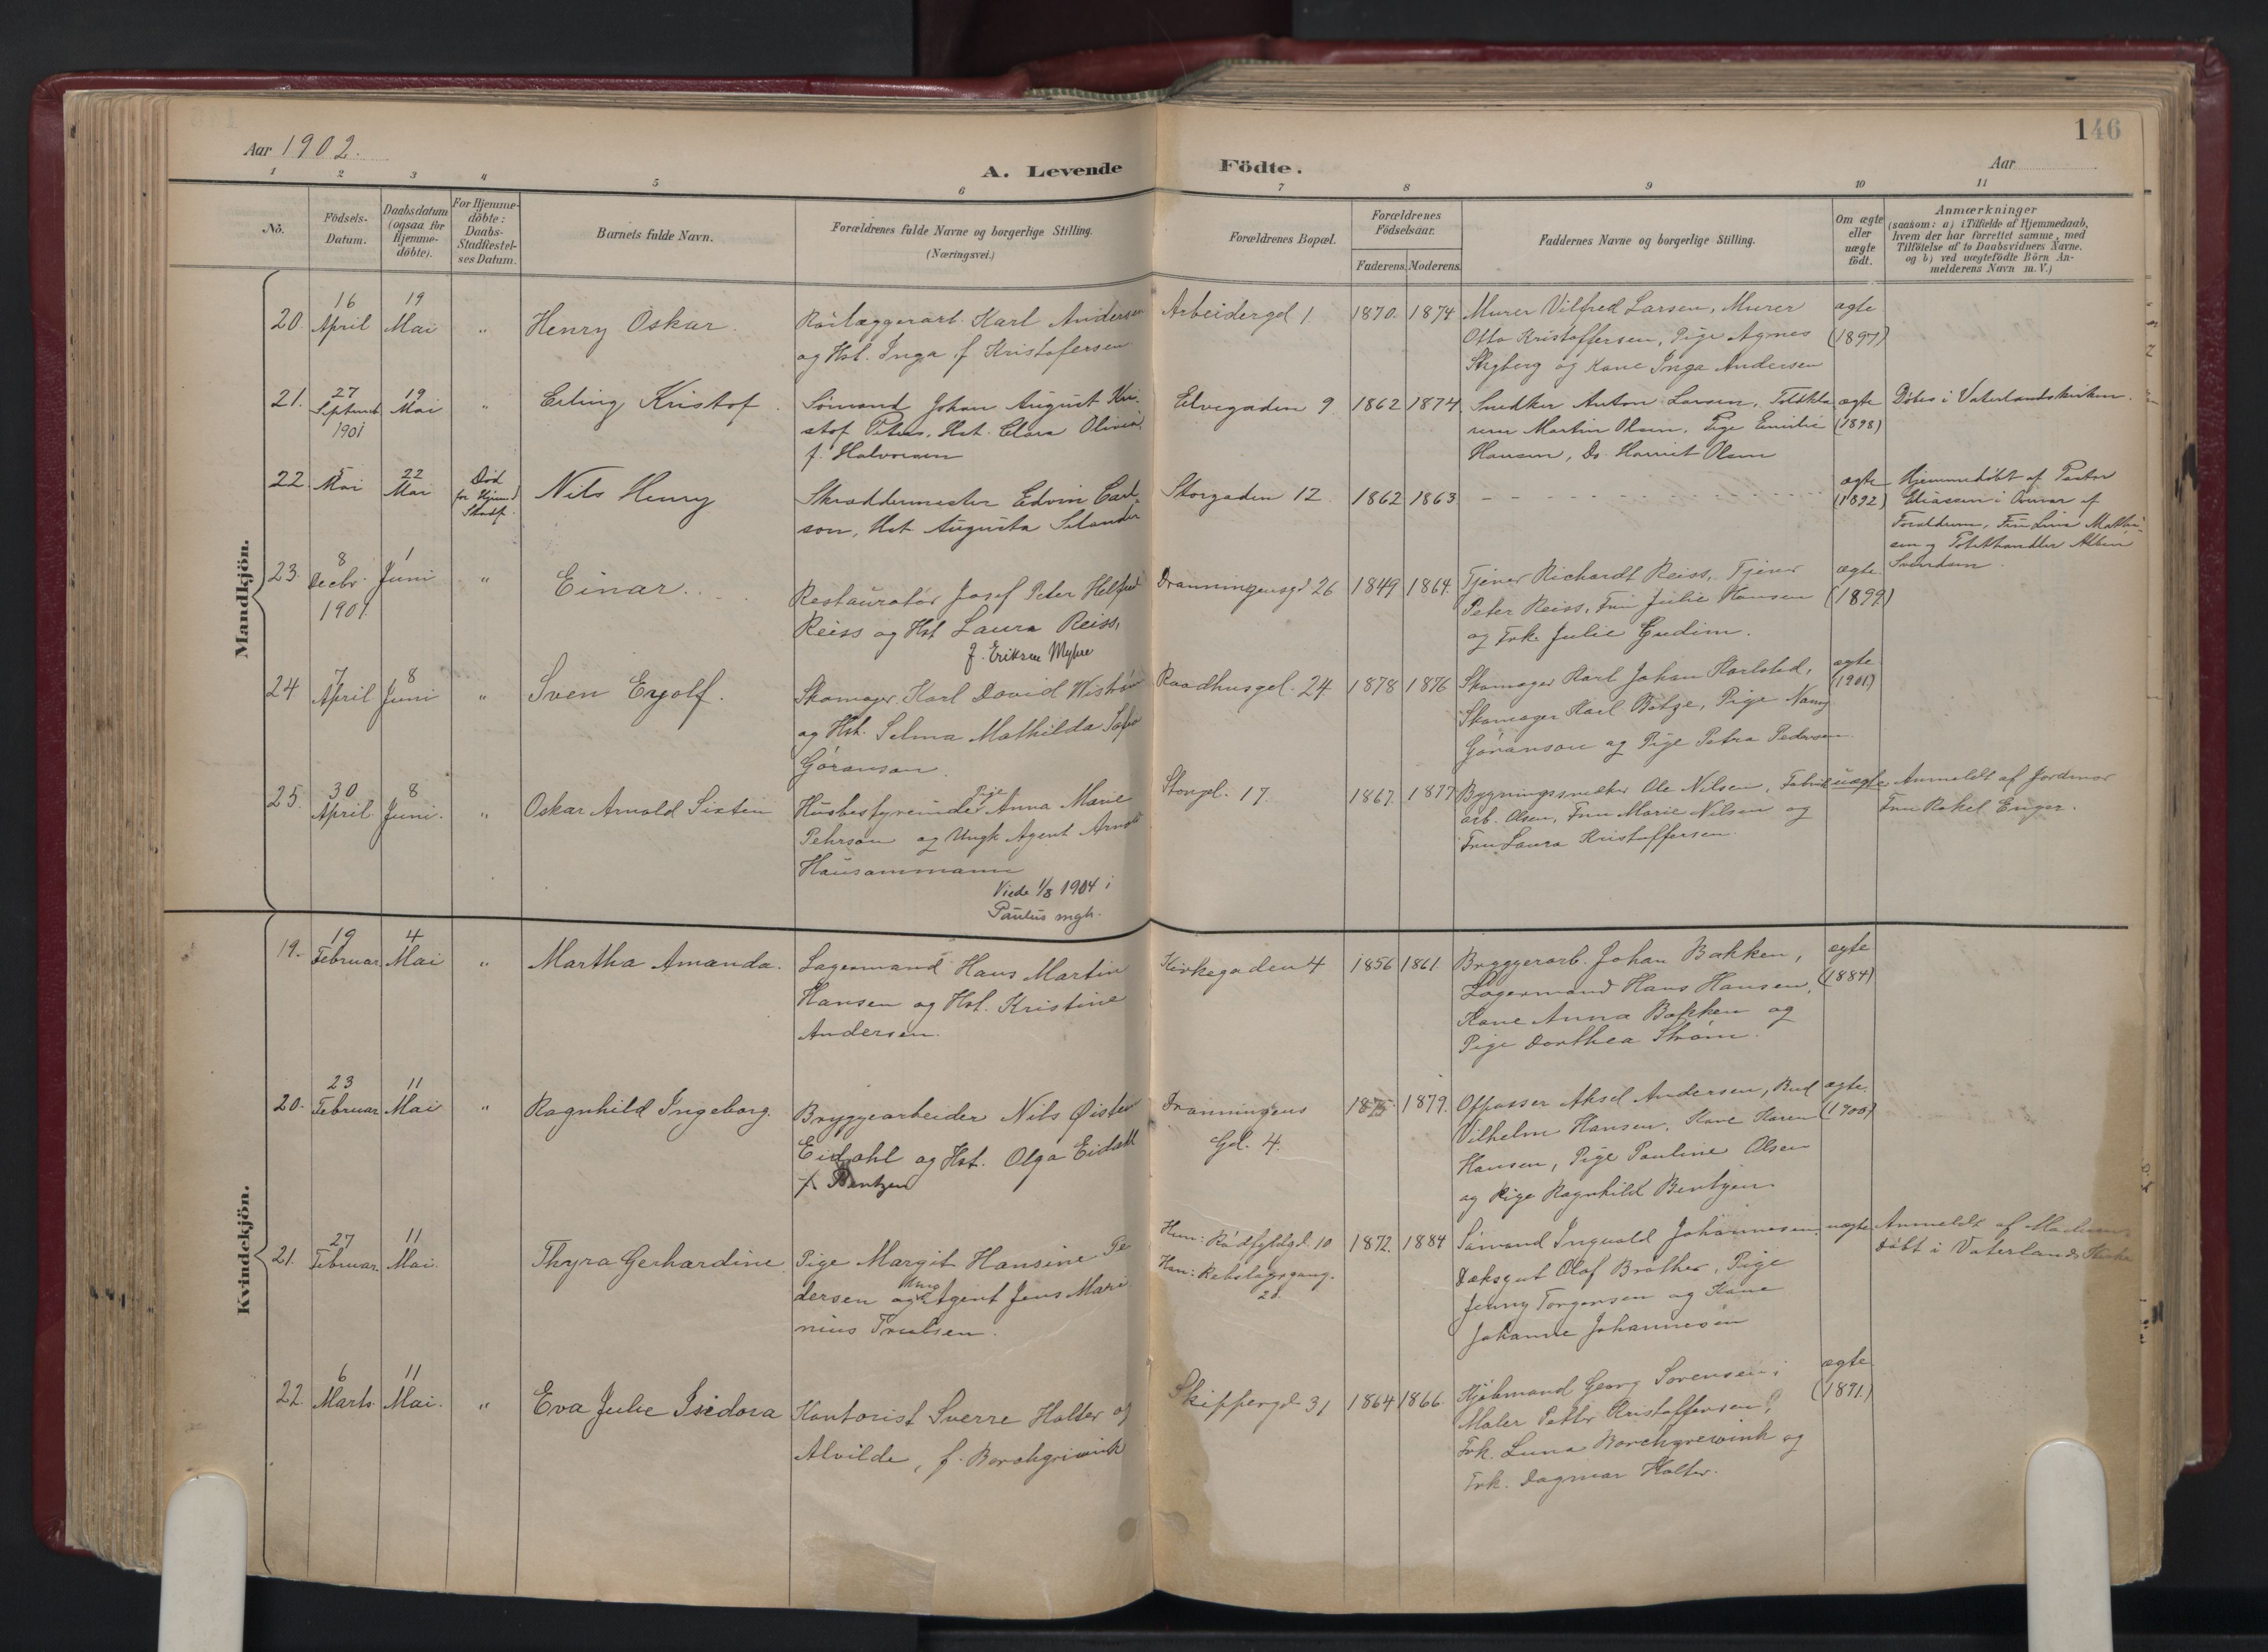 146
Aar 1902.
A. Levende Födte.
Aar
1 2 3 4 5 6 7 8 9 10 11
No.
Födsels-Datum.
Daabsdatum (ogsaa for Hjemme-döbte).
For Hjemme-döbte: Daabs-Stadfæstel-ses Datum.
Barnets fulde Navn.
Forældrenes fulde Navne og borgerlige Stilling.
(Næringsvei.)
Forældrenes Bopæl.
Forældrenes Födselsaar.
Faderens. Moderens.
Faddernes Navne og borgerlige Stilling.
Om ægte eller uægte födt.
Anmærkninger
(saasom: a) i Tilfælde af Hjemmedaab,
hvem der har forrettet samme, med
Tilföielse af to Daabsvidners Navne.
og b) ved uægtefödte Börn An-
melderens Navn m. V.)
Mandkjön.
20. 16 April 19 Mai " Henry Oskar.
Rørlæggerarb. Karl Andersen
og Hst. Inga f. Kristofersen
Arbeidergd 1 1870. 1874
Murer Vilfred Larsen, Murer
Otto Kristoffersen, Pige Agnes
Stigberg og Kone Inga Andersen
ægte (1897)
21. 27 Septemb 1901 19 Mai " Erling Kristof.
Sömand Johan August Kri-
stof Peters, Hst. Clara Olivia
f. Halvorsen
Elvegaden 9 1862 1874
Snekker Anton Larsen,
Martin Olsen, Pige Emilie
Hansen, Do Harriet Olsen
ægte (1898)
Döbes i Vaterlandskirken.
22. 5 Mai 22 Mai Död for Hjemd Stadf. Nils Henry
Skræddermester Edvin Carl-
son, Hst Augusta Selander
Storgaden 12. 1862 1863
ægte (1892)
Hjemmedöbt af Pastor
Eliassen i Nærvær af
Forældrene, Frk Lina Mathi-
sen og Potethandler
23. 8 Decbr. 1901 1 Juni " Einar.
Restauratör Josef Peter Helfred
Reiss og Hst Laura Reiss,
f. Eriksen Myhre
Dronningensgd 26 1849 1864.
Tjener Richardt Reiss, Tjener
Peter Reiss, Fru Julie Hansen
og Frk. Julie Gudim.
ægte. (1899)
24 7 April 8 Juni " Sven Eyolf.
Skomager. Karl David
og Hst. Selma Mathilda Sofia
Göranson
Raadhusgd. 24 1878 1876
Skomager Karl Johan Karlsted,
Skomager Karl Botze, Pige Nanny
Göranson og Pige Petra Pedersen
ægte (1901)
25. 30 April 8 Juni. " Oskar Arnold Sixten
Husbestyrerinde Pige Anna Marie
Pehrson og Ungk Agent Arnold
Hausammann
Viede 1/8 1904 i
Paulus mgh.
Storgd. 17. 1867. 1877
Bygningssnekker Ole Nilsen, Fabrik
arb. Olsen, Fru Marie Nilsen og
Fru Laura Kristoffersen.
uægte
Anmeldt af Jordmor
Fru Rakel Enger.
Kvindekjön.
19. 19 Februar 4 Mai " Martha Amanda.
Lagermand Hans Martin
Hansen og Hst. Kristine
Andersen.
Kirkegaden 4 1856 1861.
Bryggerarb. Johan Bakken,
Lagermand Hans Hansen,
Kone Anna Bakken og
Pige Dorthea Ström.
ægte (1884)
20. 23 Februar 11 Mai " Ragnhild Ingeborg.
Bryggearbeider Nils Øisten
Eidahl og Hst. Olga Eidahl
f. Bentzen
Dronningens
Gd. 4. 1875 1879.
Oppasser Aksel Andersen, Bud
Vilhelm Hansen, Kone Karen
Hansen, Pige Pauline Olsen
og Pige Ragnhild Bentzen
ægte (1900)
21. 27 Februar. 11 Mai. Thyra Gerhardine
Pige Margit Hansine Pe
dersen og Ung Agent Jens Mari
nius Trulsen.
Hun: Rödfyldgd. 10
Han: Rebslagergang. 28. 1872. 1884
Sömand Ingvald Johannesen,
Dæksgut Olaf Brather, Pige
Jenny Torgersen og Kone
Johanne Johannesen
uægte
Anmeldt af
döbt i Vaterlands Kirke
22. 6 Marts 11 Mai. " Eva Julie Isidora
Kontorist Sverre Halter og
Alvilde, f. Borchgrevink
Skippergd. 31 1864 1866.
Kjöbmand Georg Sorensen,
Maler Petter Kristoffersen,
Frk. Luna Borchgrevink og
Frk. Dagmar Halter.
ægte (1891.)